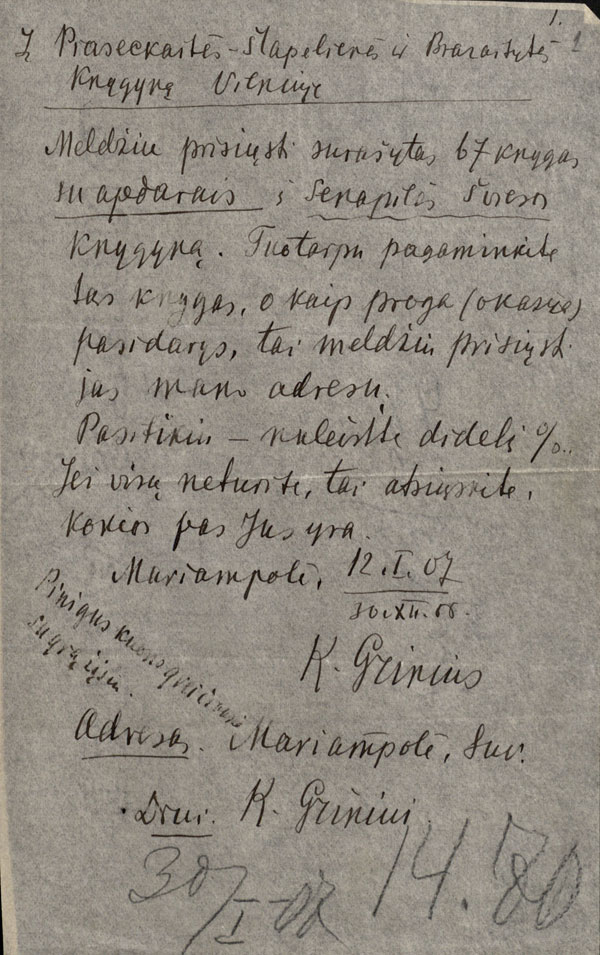 1.
Į Piaseckaitės-Šlapelienės ir Brazaitytės
Knygyną Vilniuje
Meldžiu prisiųsti surašytas 67 knygas
su apdarais į Senapilės Šviesos
Knygyną. Tuotarpu pagaminkite
tas knygas, o kaip proga (okazija)
pasidarys, tai meldžiu prisiųsti
jas mano adresu.
Pasitikiu – nuleisite didelį %.
Jei visų neturite, tai atsiųskite,
kokios pas Jus yra.
Mariampolė, 12.I.07
30.XII.06.
K. Grinius
Pinigus kuo
sugrąžįsiu.
Adresas. Mariampolė, Suv.
Drui. K. Griniui
30/I-07 14.80